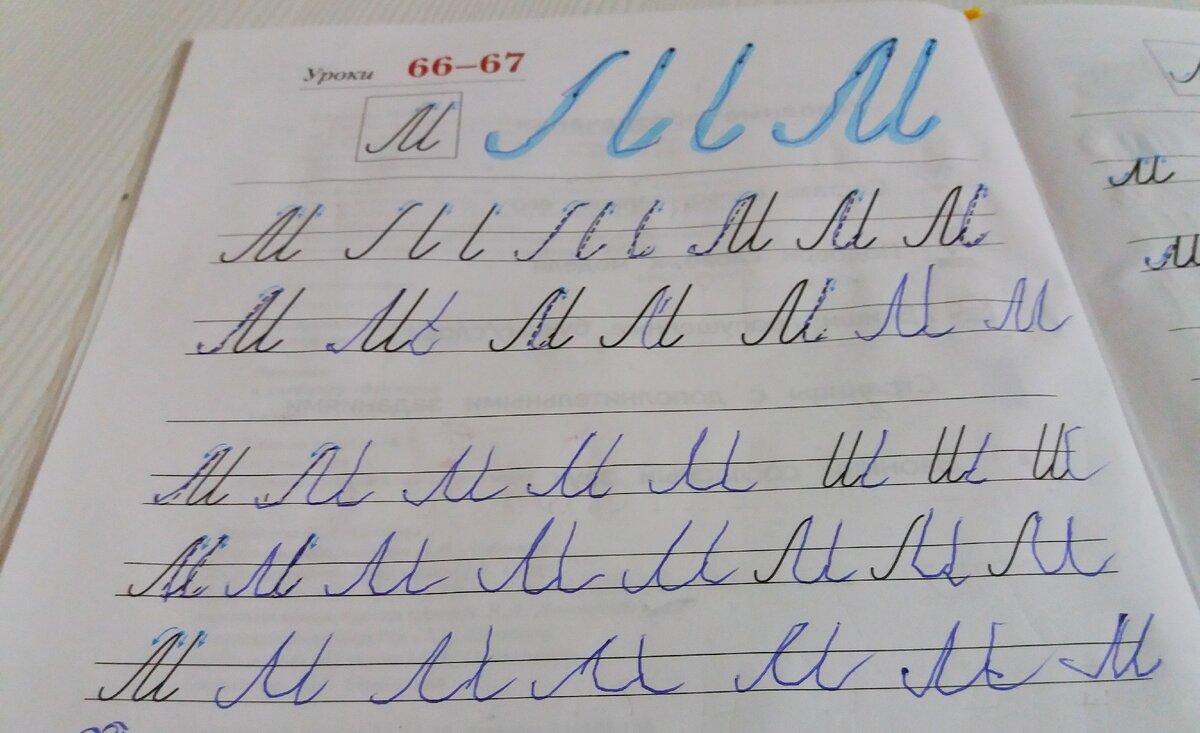 Уроки 66–67
М М
М М М М
М М М М М М М
М М М М М Ш Ш Ш
М М М М М М М М
М М М М М М М